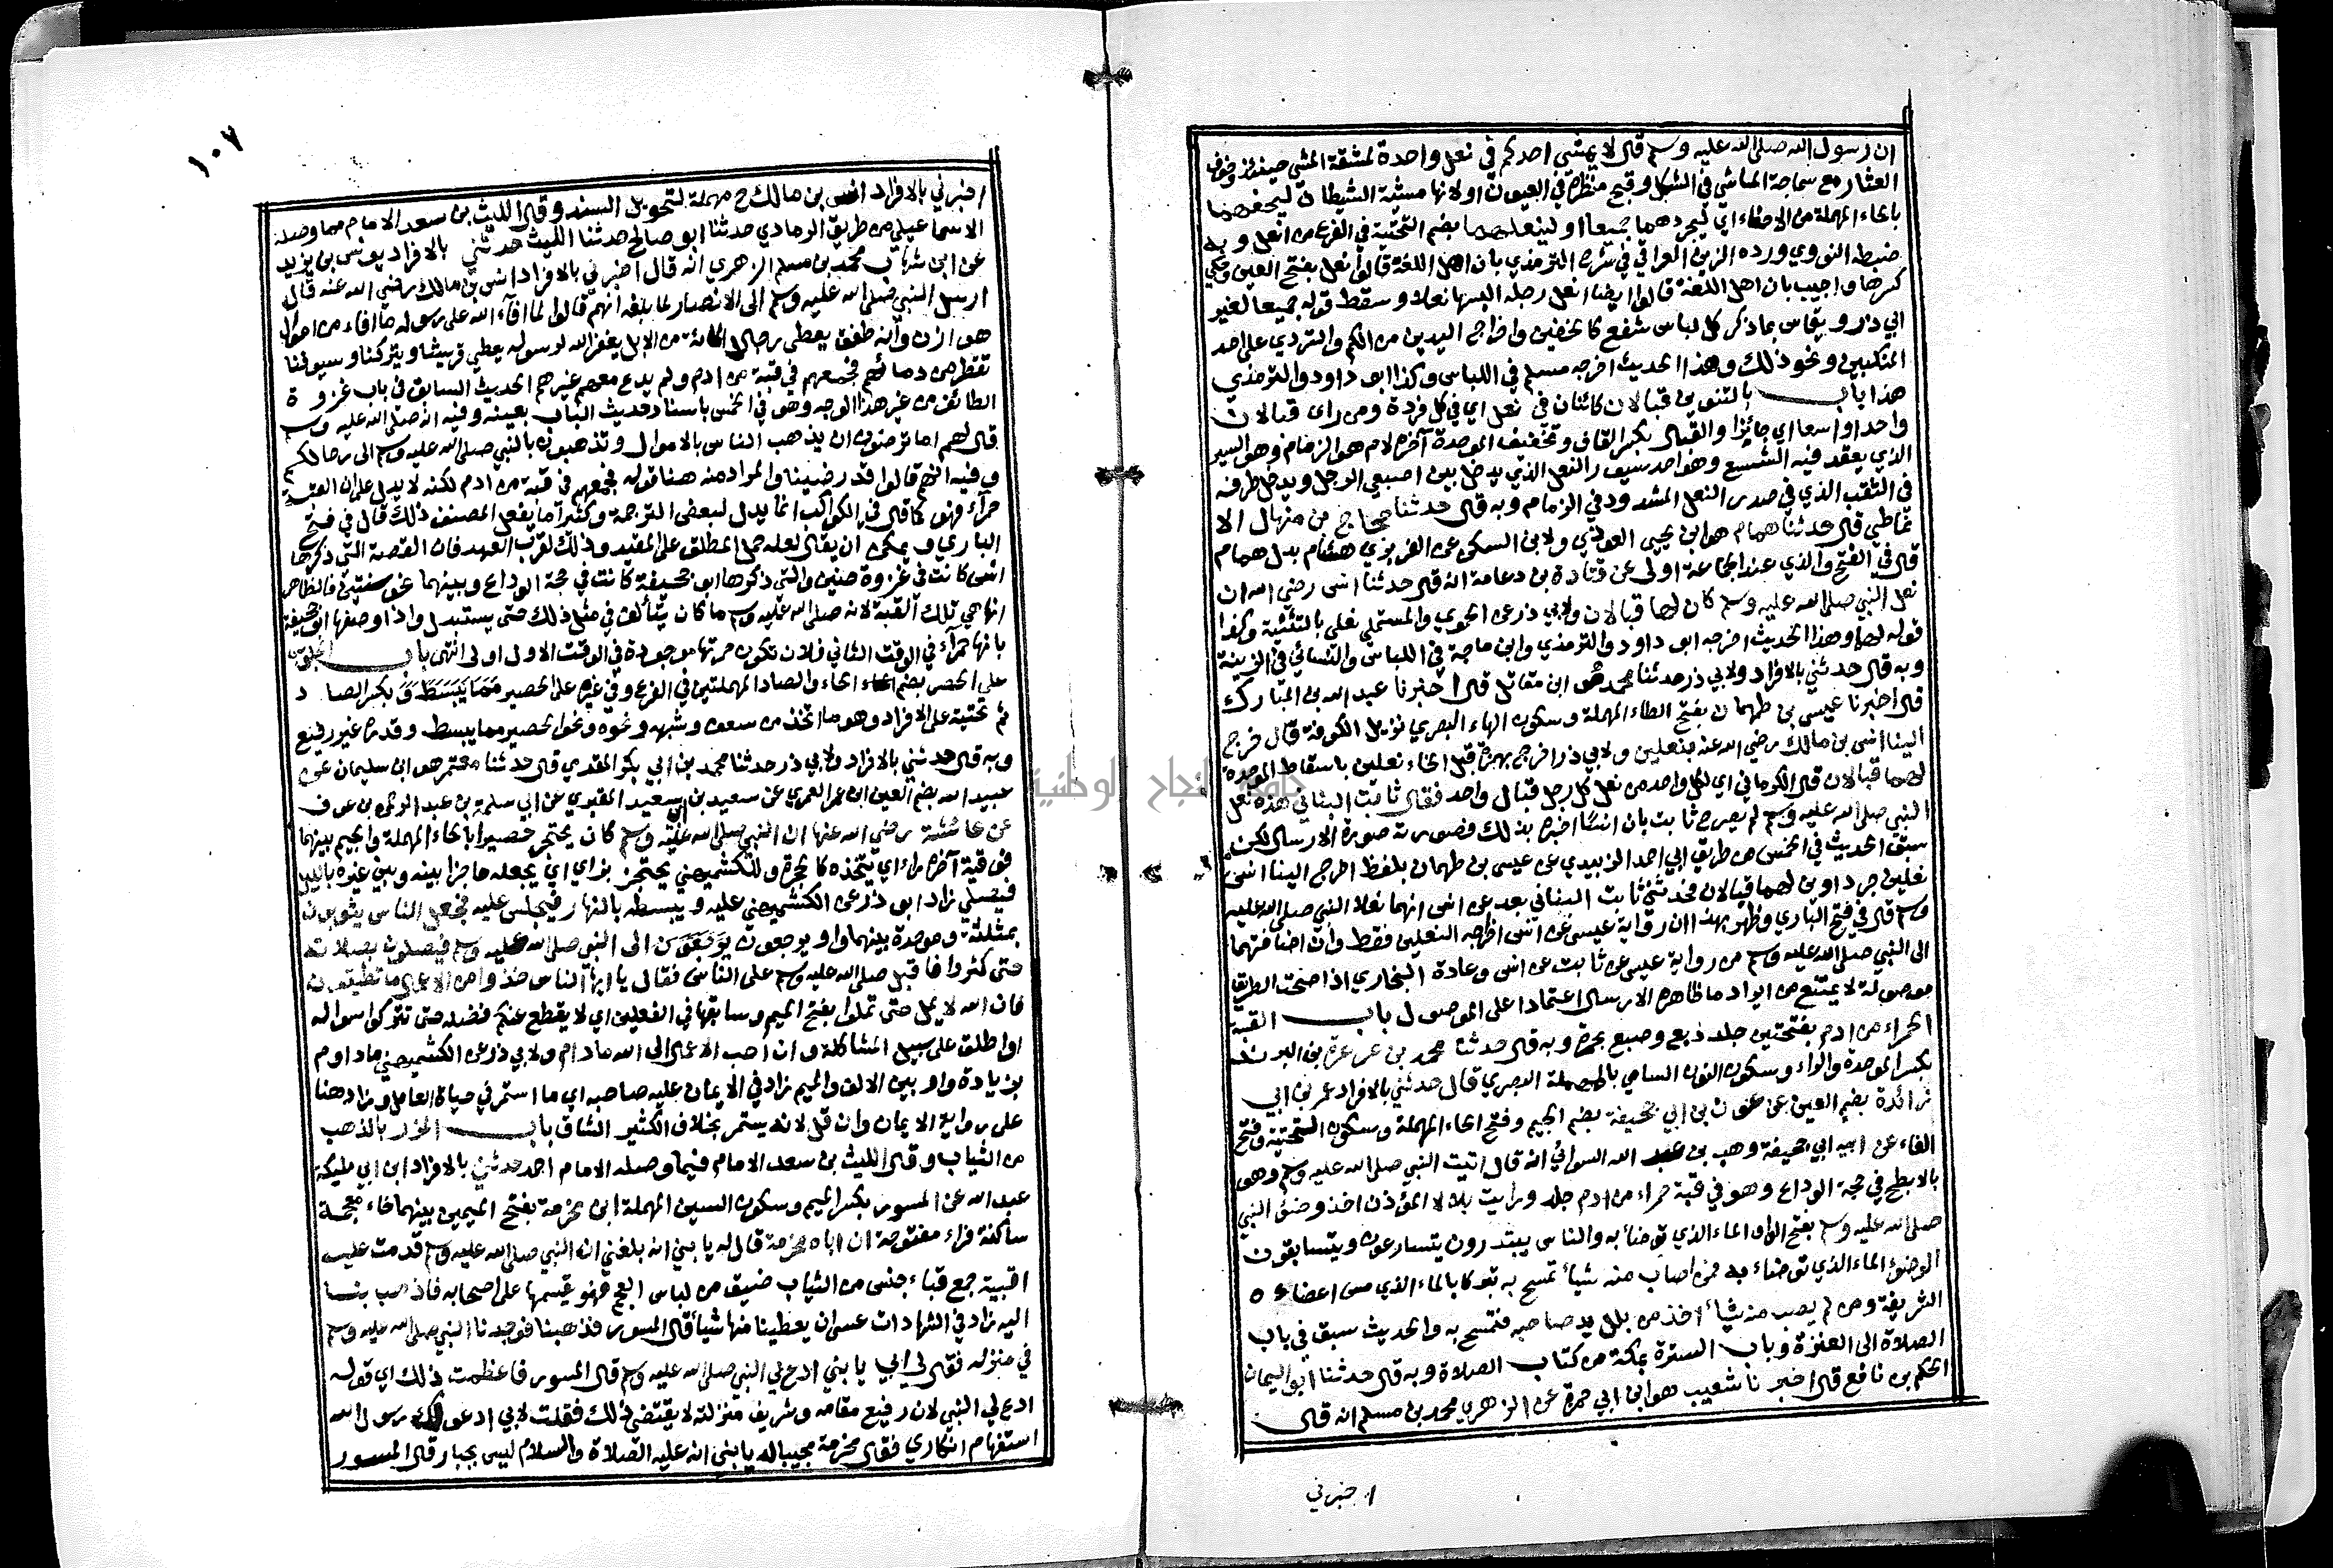 ان رسول الله صلى الله عليه وسلم قال لا يمشي احدكم في نعل واحدة لمشقة المشي حينئذ وخوف
العثار مع سماجة الماشي في الشكل وقبح منظره في العيون اولانها مشية الشيطان ليحفهما
بالحاء المهملة من الاحفاء اي ليجردهما جميعا او لينعلهما بضم التحتية في الفرع من انعل وبه
ضبطه النووي ورده الزين العراقي في شرح الترمذي بان اهل اللغة قالوا نعل بفتح العين وحكي
كسرها واجيب بان اهل اللغة قالوا ايضا انعل رجله البسها نعلا وسقط قوله جميعا لغير
ابي ذر ويقاس بما ذكر كل لباس شفع كالخفين واخراج اليدين من الكم والتردي على احد
المنكبين ونحو ذلك وهذا الحديث اخرجه مسلم في اللباس وكذا ابو داود والترمذي
هذا باب بالتنوين قبالان كائنان في نعل اي في كل فردة ومن راى قبالان
واحدا واسعا اي جائزا والقبال بكسر القاف وتخفيف الموحدة آخره لام هو الزمام وهو السير
الذي يعقد فيه الشسع وهو احد سيور النعل الذي يدخل بين اصبعي الرجل ويدخل طرفه
في الثقب الذي في صدر النعل المشدود في الزمام وبه قال حدثنا حجاج بن منهال الا
نماطي قال حدثنا همام هو ابن يحيى العوذي ولابن السكن عن الفربري هشام بدل همام
قال في الفتح والذي عند الجماعة اولى عن قتادة بن دعامة انه قال حدثنا انس رضي الله ان
نعل النبي صلى الله عليه وسلم كان لها قبالان ولابي ذر عن الحموي والمستملي نعلي بالتثنية وكذا
قوله لهما وهذا الحديث اخرجه ابو داود والترمذي وابن ماجة في اللباس والنسائي في الزينة
وبه قال حدثني بالافراد ولابي ذر حدثنا محمد هو ابن مقاتل قال اخبرنا عبد الله بن المبارك
قال اخبرنا عيسى بن طهمان بفتح الطاء المهملة وسكون الهاء البصري نزيل الكوفة قال خرج
الينا انس بن مالك رضي الله عنه بنعلين ولابي ذر اخرج بهمزة قبل الخاء نعلين باسقاط الموحدة
لهما قبالان قال الكرماني اي لكل واحد من نعل كل رجل قبال واحد فقال ثابت البناني هذه نعل
النبي صلى الله عليه وسلم لم يصرح ثابت بان انسا اخبره بذلك فصورته صورة الارسال لكن
سبق الحديث في الخمس من طريق ابي احمد الزبيدي عن عيسى بن طهمان بلفظ اخرج الينا انس
نعلين جرداوين لهما قبالان فحدثني ثابت البناني بعد عن انس انهما نعلا النبي صلى الله عليه
وسلم قال في فتح الباري وظهر بهذا ان رواية عيسى عن انس اخراجه النعلين فقط وان اضافتهما
الى النبي صلى الله عليه وسلم من رواية عيسى عن ثابت عن انس وعادة البخاري اذا صحت الطريق
موصولة لا يمتنع من ايراد ما ظاهره الارسال اعتمادا على الموصول باب القبة
الحمراء من ادم بفتحتين جلد دبغ وصبغ بحمرة وبه قال حدثنا محمد بن عرعرة بن البرند
بكسر الموحدة والراء وسكون النون السامي بالمهملة البصري قال حدثني بالافراد عمر بن ابي
زائدة بضم العين عن عون بن ابي جحيفة بضم الجيم وفتح الحاء المهملة وسكون التحتية وفتح
الفاء عن ابيه ابي جحيفة وهب بن عبد الله السوائي انه قال اتيت النبي صلى الله عليه وسلم وهو
بالابطح في حجة الوداع وهو في قبة حمراء من ادم جلد ورايت بلالا المؤذن اخذ وضوء النبي
صلى الله عليه وسلم بفتح الواو الماء الذي توضأ به والناس يبتدرون يتسارعون ويتسابقون
الوضوء الماء الذي توضاء به فمن اصاب منه شيأ تمسح به تبركا بالماء الذي مس اعضاءه
الشريفة ومن لم يصب منه شيأ اخذ من بلل يد صاحبه فتمسح به والحديث سبق في باب
الصلاة الى العنزة وباب السترة بمكة من كتاب الصلاة وبه قال حدثنا ابو اليمان
الحكم بن نافع قال اخبرنا شعيب هو ابن ابي حمزة عن الزهري محمد بن مسلم انه قال
اخبرني
١٠٧
اخبرني بالافراد انس بن مالك ح مهملة لتحويل السند وقال الليث بن سعد الامام مما وصله
الاسماعيلي من طريق الرمادي حدثنا ابو صالح حدثنا الليث حدثني بالافراد يونس بن يزيد
عن ابن شهاب محمد بن مسلم الزهري انه قال اخبرني بالافراد انس بن مالك رضي الله عنه قال
ارسل النبي صلى الله عليه وسلم الى الانصار لما بلغه انهم قالوا لما افاء الله على رسوله ما افاء من اموال
هوازن وانه طفق يعطي رجالا المائة من الابل يغفر الله لرسوله يعطي قريشا ويتركنا وسيوفنا
تقطر من دمائهم فجمعهم في قبة من ادم ولم يدع معهم غيرهم الحديث السابق في باب غزوة
الطائف من غير هذا الوجه وهو في الخمس باسناد حديث الباب بعينه وفيه انه صلى الله عليه وسلم
قال لهم اما ترضون ان يذهب الناس بالاموال وتذهبون بالنبي صلى الله عليه وسلم الى رحالكم
وفيه انهم قالوا قد رضينا والمراد منه هنا قوله فجمعهم في قبة من ادم لكنه لا يدل على ان القبة
حمراء فهو كما قال في الكواكب انما يدل لبعض الترجمة وكثيرا ما يفعل المصنف ذلك قال في فتح
الباري ويمكن ان يقال لعله حمل المطلق على المقيد وذلك لقرب العهد فان القصة التي ذكرها
انس كانت في غزوة حنين والتي ذكرها ابو جحيفة كانت في حجة الوداع وبينهما نحو سنتين فالظاهر
انها هي تلك القبة لانه صلى الله عليه وسلم ما كان يتأنق في مثل ذلك حتى يستبدل واذا وصفها ابو جحيفة
بانها حمراء في الوقت الثاني فلان تكون حمرتها موجودة في الوقت الاول اولى انتهى باب الجلوس
على الحصر بضم الحاء والصاد المهملتين في الفرع وفي غيره على الحصير بكسر الصاد
ثم تحتية على الافراد وهو ما اتخذ من سعف وشبهه ونحوه ونحو الحصير مما يبسط وقدره غير رفيع
وبه قال حدثني بالافراد ولابي ذر حدثنا محمد بن ابي بكر المقدمي قال حدثنا معتمر هو ابن سليمان عن
عبيد الله بضم العين ابن عمر العمري عن سعيد بن ابي سعيد المقبري عن ابي سلمة بن عبد الرحمن بن عوف
عن عائشة رضي الله عنها ان النبي صلى الله عليه وسلم كان يحتجر حصيرا بالحاء المهملة والجيم بينهما
فوقية آخره راء اي يتخذه كالحجرة وللكشميهني يحتجز بزاي اي يجعله حاجزا بينه وبين غيره بالليل
فيصلي زاد ابو ذر عن الكشميهني عليه ويبسطه بالنهار فيجلس عليه فجعل الناس يثوبون
بمثلثة وموحدة بينهما واو يرجعون الى النبي صلى الله عليه وسلم فيصلون بصلاته
حتى كثروا فاقبل صلى الله عليه وسلم على الناس فقال يا ايها الناس خذوا من الاعمال ما تطيقون
فان الله لا يمل حتى تملوا بفتح الميم وسابقها في الفعلين اي لا يقطع عنكم فضله حتى تتركوا سواله
او اطلق على سبيل المشاكلة وان احب الاعمال الى الله ما دام ولابي ذر عن الكشميهني ما داوم
بزيادة واو بين الالف والميم زاد في الايمان عليه صاحبه اي ما استمر في حياة العامل وزاد هنا
على رواية الايمان وان قل لانه يستمر بخلاف الكثير الشاق باب المزرر بالذهب
من الثياب وقال الليث بن سعد الامام فيما وصله الامام احمد حدثني بالافراد ابن ابي مليكة
عبد الله عن المسور بكسر الميم وسكون السين المهملة ابن مخرمة بفتح الميمين بينهما خاء معجمة
ساكنة فراء مفتوحة ان اباه مخرمة قال له يا بني انه بلغني ان النبي صلى الله عليه وسلم قدمت عليه
اقبية جمع قباء جنس من الثياب ضيق من لباس العجم فهو يقسمها على اصحابه فاذهب بنا
اليه زاد في الشهادات عسى ان يعطينا منها شيأ قال المسور فذهبنا فوجدنا النبي صلى الله عليه وسلم
في منزله فقال لي ابي يا بني ادع لي النبي صلى الله عليه وسلم قال المسور فاعظمت ذلك اي قوله
ادع لي النبي لان رفيع مقامه وشريف منزلته لا يقتضي ذلك فقلت لابي ادعو لك رسول الله
استفهام انكاري فقال مخرمة مجيبا له يا بني انه عليه الصلاة والسلام ليس بجبار قال المسور
جامعة النجاح الوطنية